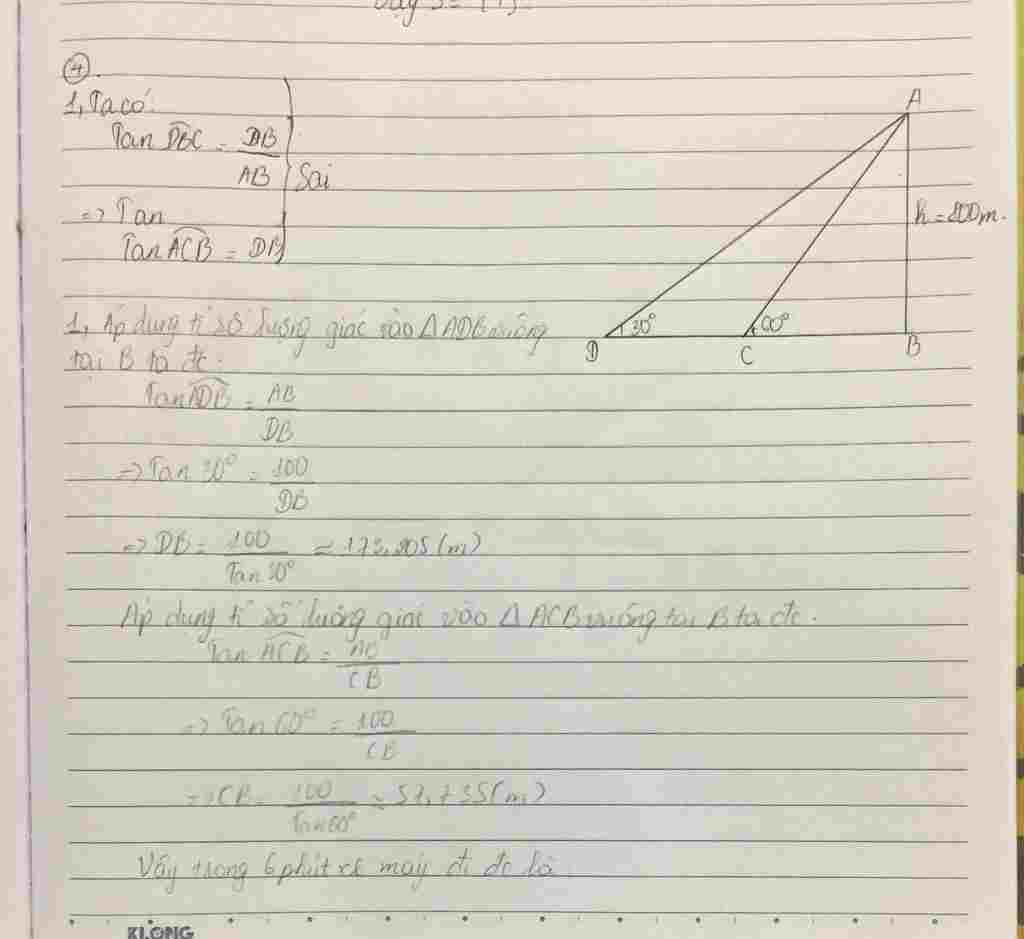 Vậy S =
4
1, Ta có:
Tan DBC = DB
AB
Sai
=> Tan
Tan ACB = DB
A
h = 100m.
30°
60°
D
C
B
1, Áp dụng tỉ số lượng giác vào △ADB vuông
tại B ta đc:
Tan ADB = AB
DB
=> Tan 30° = 100
DB
=> DB = 100 ≈ 173,205 (m)
Tan 30°
Áp dụng tỉ số lượng giác vào △ ACB vuông tại B ta đc.
Tan ACB =
CB
=> Tan 60° = 100
CB
=> CB = 100 ≈ 57,735(m)
Tan 60°
Vậy trong 6 phút xe máy đi đc là
KLONG